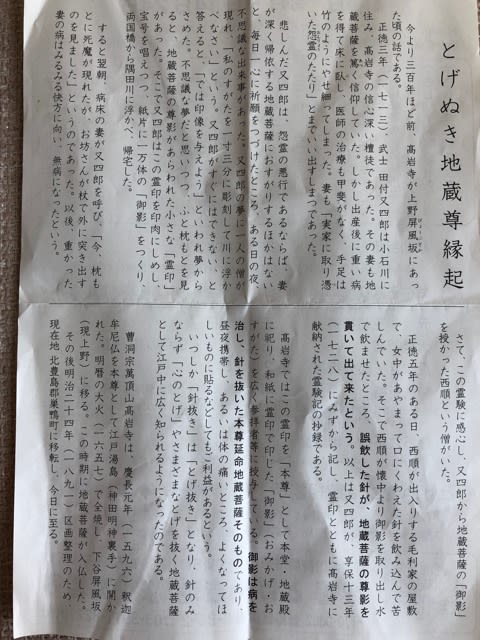 とげぬき地蔵尊縁起
今より三百年ほど前、高岩寺が上野屏風坂にあっ
た頃の話である。
正徳三年(一七一三)武士 田付又四郎は小石川に
住み、高岩寺の信心深い檀徒であった。その妻も地
蔵菩薩を篤く信仰していた。しかし出産後に重い病
を得て床に臥し、医師の治療も甲斐がなく、手足は
竹のようにやせ細ってしまった。妻も「実家に取り憑
いた怨霊のたたり」とまでいい出すしまつであった。
悲しんだ又四郎は、怨霊の悪行であるならば、妻
が深く帰依する地蔵菩薩におすがりするほかはない
と、毎日一心に祈願をつづけたところ、ある日の夜、
不思議な出来事があった。又四郎の夢に一人の僧が
現れ、「私のすがたを一寸三分に彫刻して川に浮か
べなさい」という。又四郎がすぐにはできない、と
答えると、「では印像を与えよう」といわれ夢から
さめた。不思議な夢だと思いつつ、ふと枕もとを見
ると、地蔵菩薩の尊影があらわれた小さな「霊印」
があった。そこで又四郎はこの霊印を印肉にしめし、
宝号を唱えつつ、紙片に一万体の「御影」をつくり、
両国橋から隅田川に浮かべ、帰宅した。
すると翌朝、病床の妻が又四郎を呼び、「今、枕も
とに死魔が現れたが、お坊さんが杖で外に突き出す
のを見ました」というのであった。以後、重かった
妻の病はみるみる快方に向い、無病になったという。
さて、この霊験に感心し、又四郎から地蔵尊の「御影」
を授かった西順という僧がいた。
正徳五年のある日 西順が出入りする毛利家の屋敷
で、女中があやまって口にくわえた針を飲み込んで苦
しんでいた。そこで西順が懐中より御影を取り出し水
で飲ませたところ、誤飲した針が、地蔵菩薩の尊影を
貫いて出て来たという。以上は又四郎が、享保十三年
(一七二八)にみずから記し、霊印とともに高岩寺に
献納された霊験記の抄録である。
高岩寺ではこの霊印を「本尊」として本堂・地蔵殿
に祀り、和紙に霊印で印じた「御影」(おみかげ・お
すがた)を広く参拝者等に授与している。御影は病を
治し、針を抜いた本尊延命地蔵菩薩そのものであり、
昼夜携帯し、あるいは体の痛いところ、よくなってほ
しいものに貼るなどしてもご利益があるという。
いつしか「針抜き」は「とげ抜き」となり、針のみ
ならず「心のとげ」やさまざまなとげを抜く地蔵菩薩
として江戸中に広く知られるようになったのである。
曹洞宗萬頂山高岩寺は、慶長元年(一五九六)釈迦
牟尼仏を本尊として江戸湯島(神田明神裏手)に開か
れた。明暦の大火(一六五七)で全焼し、下谷屏風坂
(現上野)に移る。この時期に地蔵菩薩が入仏した。
その後明治二十四年(一八九一)区画整理のため
現在地 北豊島郡巣鴨町に移転し、今日に至る。